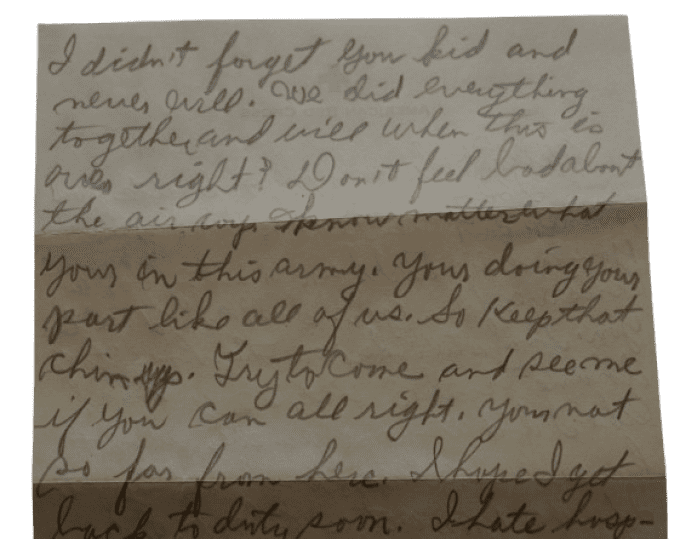 I didn't forget you kid and
never will. We did everything
together, and will when this is
over right? Don't feel bad about
the air corp. I know matter what
Your in this army. Your doing your
part like all of us. So Keep that
chin up. Try to Come and see me
if you can all right. Your not
so far from here. I hope I get
back to duty soon. I hate hosp-